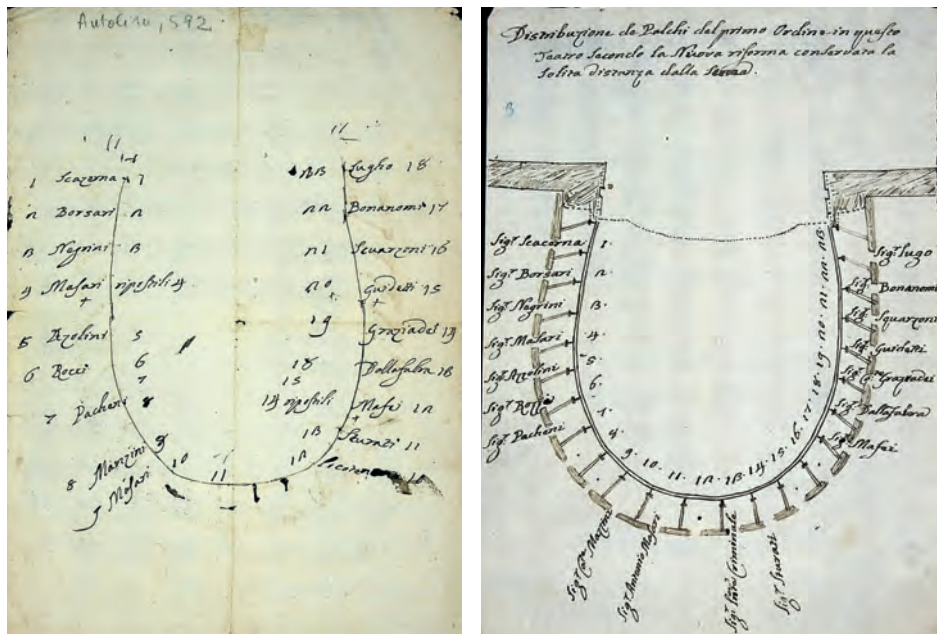 Autolino, 592
11
11
1 Scacerna 1
2 Borsari 2
3 Negrini 3
4 Masari ripostili 4
5 Azolini 5
6 Rocci 6
7
7 Pacheni 8
8 Manzini 9
9 Masari 10
11
23 Lugho 18
22 Bonanomi 17
21 Scuarzoni 16
20 Guidetti 15
19 Graziadei 14
18 Dallafabra 13
15
14 ripostili Mafei 12
13 Scurati 11
12
Distribuzione de Palchi del primo Ordine in questo
Teatro secondo la Nuova riforma conservata la
solita distanza dalla Scena.
3
Sigr Scacerna 1.
Sigr Borsari 2.
Sigr Negrini 3.
Sigr Masari 4.
Sigr Azolini 5.
Sigr Rossi 6.
Sigr Pacheni 7.
9. 10. 11. 12. 13. 14. 15. 16. 17. 18. 19. 20. 21. 22. 23.
Sigr Lugo
Sigr Bonanomi
Sigr Squarzoni
Sigr Guidetti
Sigr Graziadei
Sigr Dallafabra
Sigr Mafei
Sigr Manzini
Sigr Antonio Masari
Sigr Criminale
Sigr Scurati